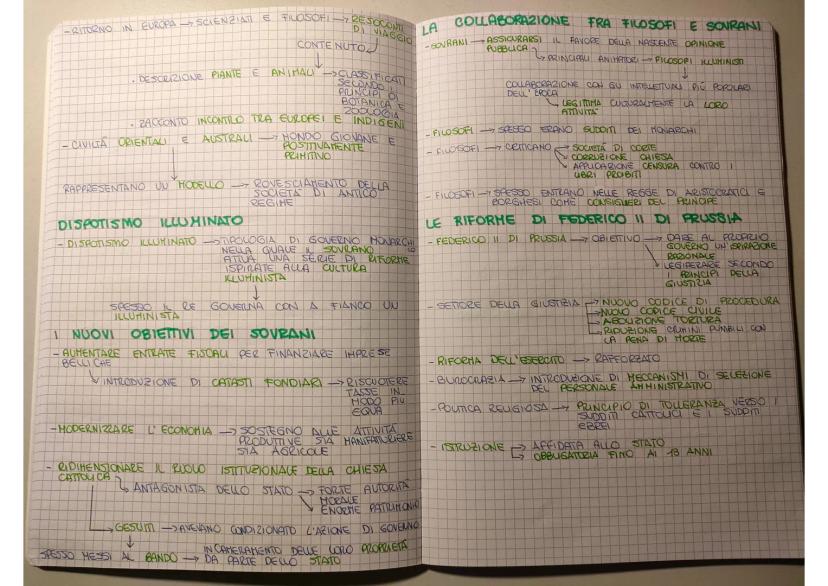 - RITORNO IN EUROPA → SCIENZIATI E FILOSOFI → RESOCONTI
DI VIAGGIO
CONTENUTO
· DESCRIZIONE PIANTE E ANIMALI → CLASSIFICATI
SECONDO I
PRINCIPI DI
BOTANICA E
ZOOLOGIA
· RACCONTO INCONTRO TRA EUROPEI E INDIGENI
- CIVILTÀ ORIENTALI E AUSTRALI → MONDO GIOVANE E
POSITIVAMENTE
PRIMITIVO
RAPPRESENTANO UN MODELLO → ROVESCIAMENTO DELLA
SOCIETÀ DI ANTICO
REGIME
DISPOTISMO ILLUMINATO
- DISPOTISMO ILLUMINATO → TIPOLOGIA DI GOVERNO MONARCHICO
NELLA QUALE IL SOVRANO
ATTUA UNA SERIE DI RIFORME
ISPIRATE ALLA CULTURA
ILLUMINISTA
SPESSO IL RE GOVERNA CON A FIANCO UN
ILLUMINISTA
I NUOVI OBIETTIVI DEI SOVRANI
- AUMENTARE ENTRATE FISCALI PER FINANZIARE IMPRESE
BELLICHE
INTRODUZIONE DI CATASTI FONDIARI → RISCUOTERE
TASSE IN
MODO PIÙ
EQUA
- MODERNIZZARE L'ECONOMIA → SOSTEGNO ALLE ATTIVITÀ
PRODUTTIVE SIA MANIFATTURIERE
SIA AGRICOLE
- RIDIMENSIONARE IL RUOLO ISTITUZIONALE DELLA CHIESA
CATTOLICA
ANTAGONISTA DELLO STATO → FORTE AUTORITÀ
MORALE
ENORME PATRIMONIO
→ GESUITI → AVEVANO CONDIZIONATO L'AZIONE DI GOVERNO
SPESSO MESSI AL BANDO → INCAMERAMENTO DELLE LORO PROPRIETÀ
DA PARTE DELLO STATO
LA COLLABORAZIONE FRA FILOSOFI E SOVRANI
- SOVRANI → ASSICURARSI IL FAVORE DELLA NASCENTE OPINIONE
PUBBLICA
PRINCIPALI ANIMATORI → FILOSOFI ILLUMINISTI
COLLABORAZIONE CON GLI INTELLETTUALI PIÙ POPOLARI
DELL'EPOCA
LEGITTIMA CULTURALMENTE LA LORO
ATTIVITÀ
- FILOSOFI → SPESSO ERANO SUDDITI DEI MONARCHI
- FILOSOFI → CRITICANO → SOCIETÀ DI CORTE
CORRUZIONE CHIESA
APPLICAZIONE CENSURA CONTRO I
LIBRI PROIBITI
- FILOSOFI → SPESSO ENTRANO NELLE REGGE DI ARISTOCRATICI E
BORGHESI COME CONSIGLIERI DEL PRINCIPE
LE RIFORME DI FEDERICO II DI PRUSSIA
- FEDERICO II DI PRUSSIA → OBIETTIVO → DARE AL PROPRIO
GOVERNO UN'ISPIRAZIONE
RAZIONALE
LEGIFERARE SECONDO
I PRINCIPI DELLA
GIUSTIZIA
- SETTORE DELLA GIUSTIZIA → NUOVO CODICE DI PROCEDURA
→ NUOVO CODICE CIVILE
→ ABOLIZIONE TORTURA
→ RIDUZIONE CRIMINI PUNIBILI CON
LA PENA DI MORTE
- RIFORMA DELL'ESERCITO → RAFFORZATO
- BUROCRAZIA → INTRODUZIONE DI MECCANISMI DI SELEZIONE
DEL PERSONALE AMMINISTRATIVO
- POLITICA RELIGIOSA → PRINCIPIO DI TOLLERANZA VERSO I
SUDDITI CATTOLICI E I SUDDITI
EBREI
- ISTRUZIONE → AFFIDATA ALLO STATO
→ OBBLIGATORIA FINO AI 13 ANNI